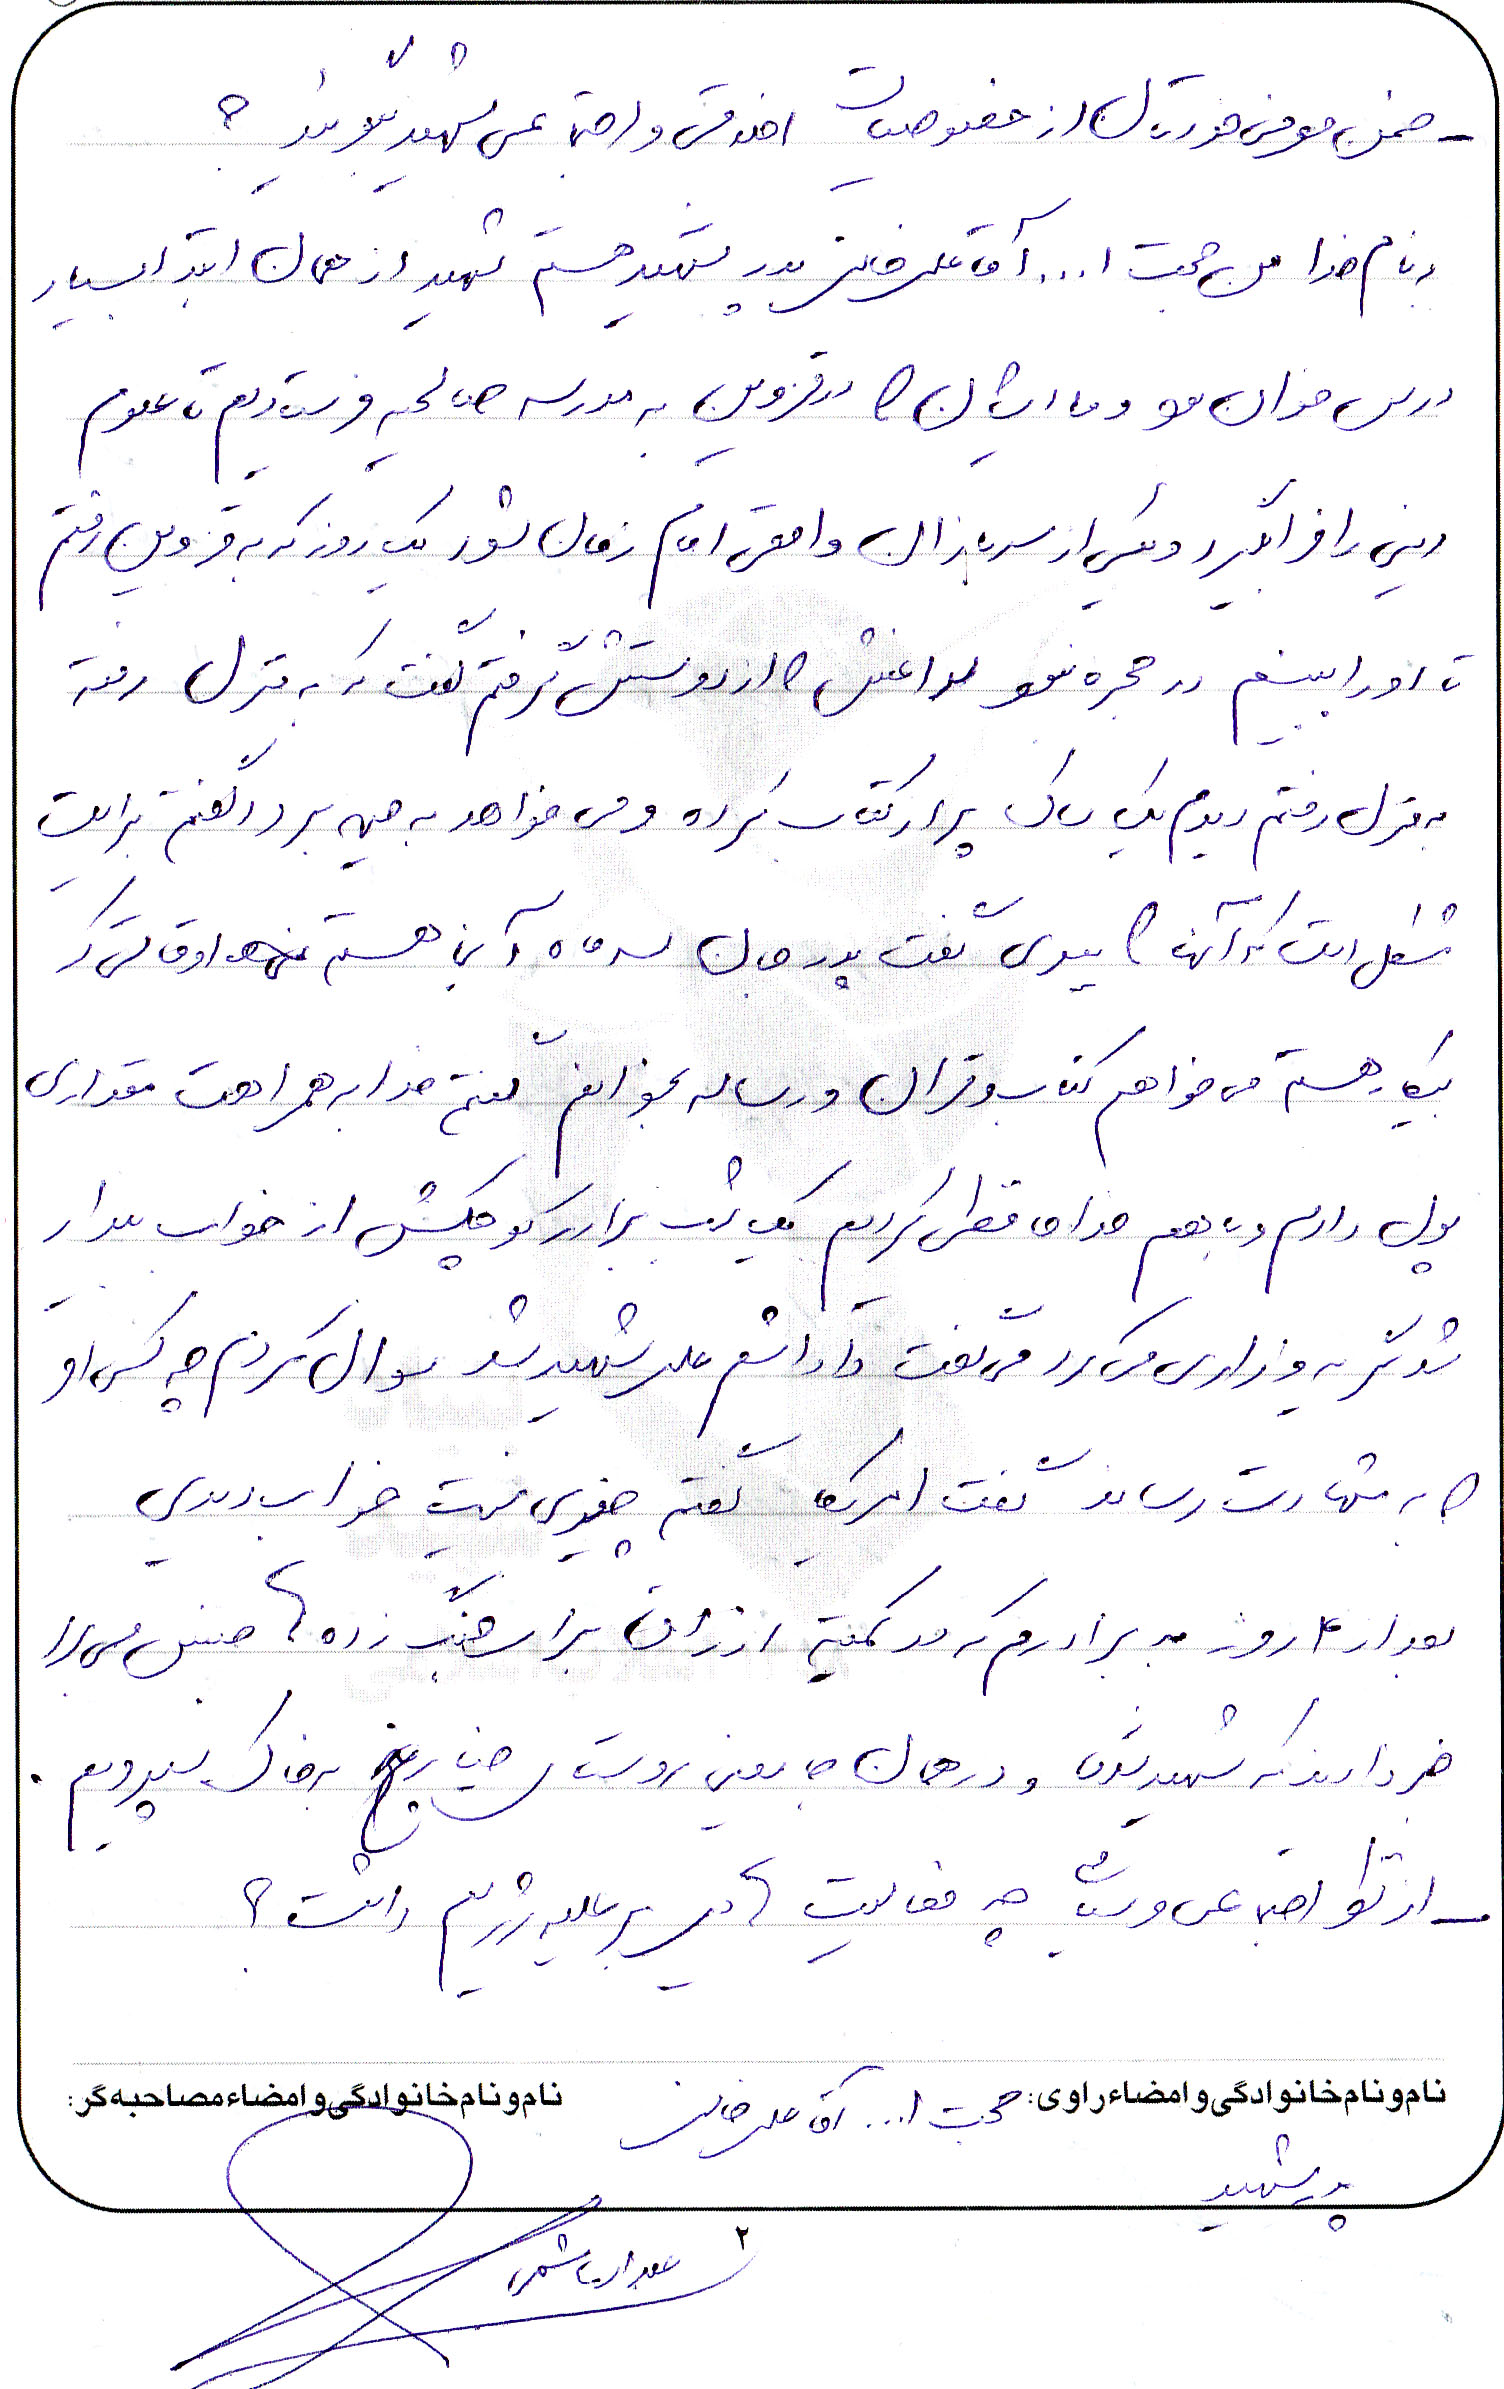 ـ ضمن معرفی خودتان از خصوصیات اخلاقی و اجتماعی شهید بگویید ؟
بنام خدا من حجت ا... آقاعلیخانی پدر شهید هستم شهید از همان ابتدا بسیار
درس خوان بود و ما ایشان را در قزوین به مدرسه صالحیه فرستادیم تا علوم
دینی را فرا بگیرد و یکی از سربازان واقعی امام زمان شود یک روز که به قزوین رفتم
تا او را ببینم در حجره نبود سراغش را از دوستش گرفتم گفت که به منزل رفته
به منزل رفتم دیدم یک ساک پر از کتاب کرده و می خواهد به جبهه ببرد گفتم برایت
مشکل است که آنها را ببری گفت پدر جان سه ماه آنجا هستم اوقاتی که
بیکار هستم می خواهم کتاب و قرآن و رساله بخوانم گفتم خدا به همراهت مقداری
پول دادم و با هم خداحافظی کردیم یک شب برادر کوچکش از خواب بیدار
شد گریه و زاری می کرد می گفت داداشم علی شهید شد سوال کردم چه کسی او
را به شهادت رساند گفت امریکا گفتم چیزی نیست خواب دیدی
بعد از ۴ روز به برادرم که در کمیته ارزاق برای جنگ زده ها جنس می برد
خبر دادند که شهید شده و در همان جا یعنی روستای به خاک سپردیم .
ـ از نظر اجتماعی و سیاسی چه فعالیت هایی بر علیه رژیم داشت ؟
نام و نام خانوادگی و امضاء راوی: حجت ا... آقاعلیخانی نام و نام خانوادگی و امضاء مصاحبه گر:
پدر شهید
۲